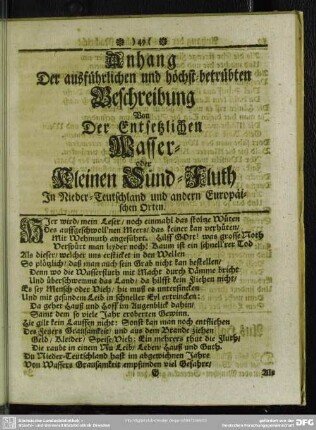 ) 49 (
Anhang
Der ausführlichen und höchst-betrübten
Beschreibung
Von
Der Entsetzlichen
Wasser-
oder
Kleinen Sünd-Fluth
In Nieder-Teutschland und andern Europäi-
schen Orten.
Hier wird/ mein Leser/ noch einmahl das stoltze Wüten
Des auffgeschwoll'nen Meers/ das keiner kan verhüten/
Mit Wehmuth angeführt. Hilff Gott! was grosse Noth
Verspürt man leyder noch! Kaum ist ein schneller Tod
Als dieser/ welcher uns ersticket in den Wellen
So plötzlich/ daß man auch sein Grab nicht kan bestellen/
Denn wo die Wasserfluth mit Macht durch Dämme bricht
Und überschwemmt das Land/ da hilfft kein Fliehen nicht/
Es sey Mensch oder Vieh/ die muß es untersincken
Und mit geschwindem Leib in schneller Eyl ertrincken:
Da gehet Hauß und Hoff im Augenblick dahin/
Samt dem so viele Jahr eroberten Gewinn.
Hie gilt kein Lauffen nicht: Sonst kan man noch entfliehen
Des Feuers Grausamkeit/ und aus dem Brande ziehen
Geld/ Kleider/ Speise/ Vieh: Ein mehrers thut die Fluth/
Die raubt in einem Nu Leib/ Leben/ Hauß und Guth.
Da Nieder-Teutschland hast im abgewichnen Jahre
Von Wassers Grausamkeit empfunden viel Gefahre/
G
Als